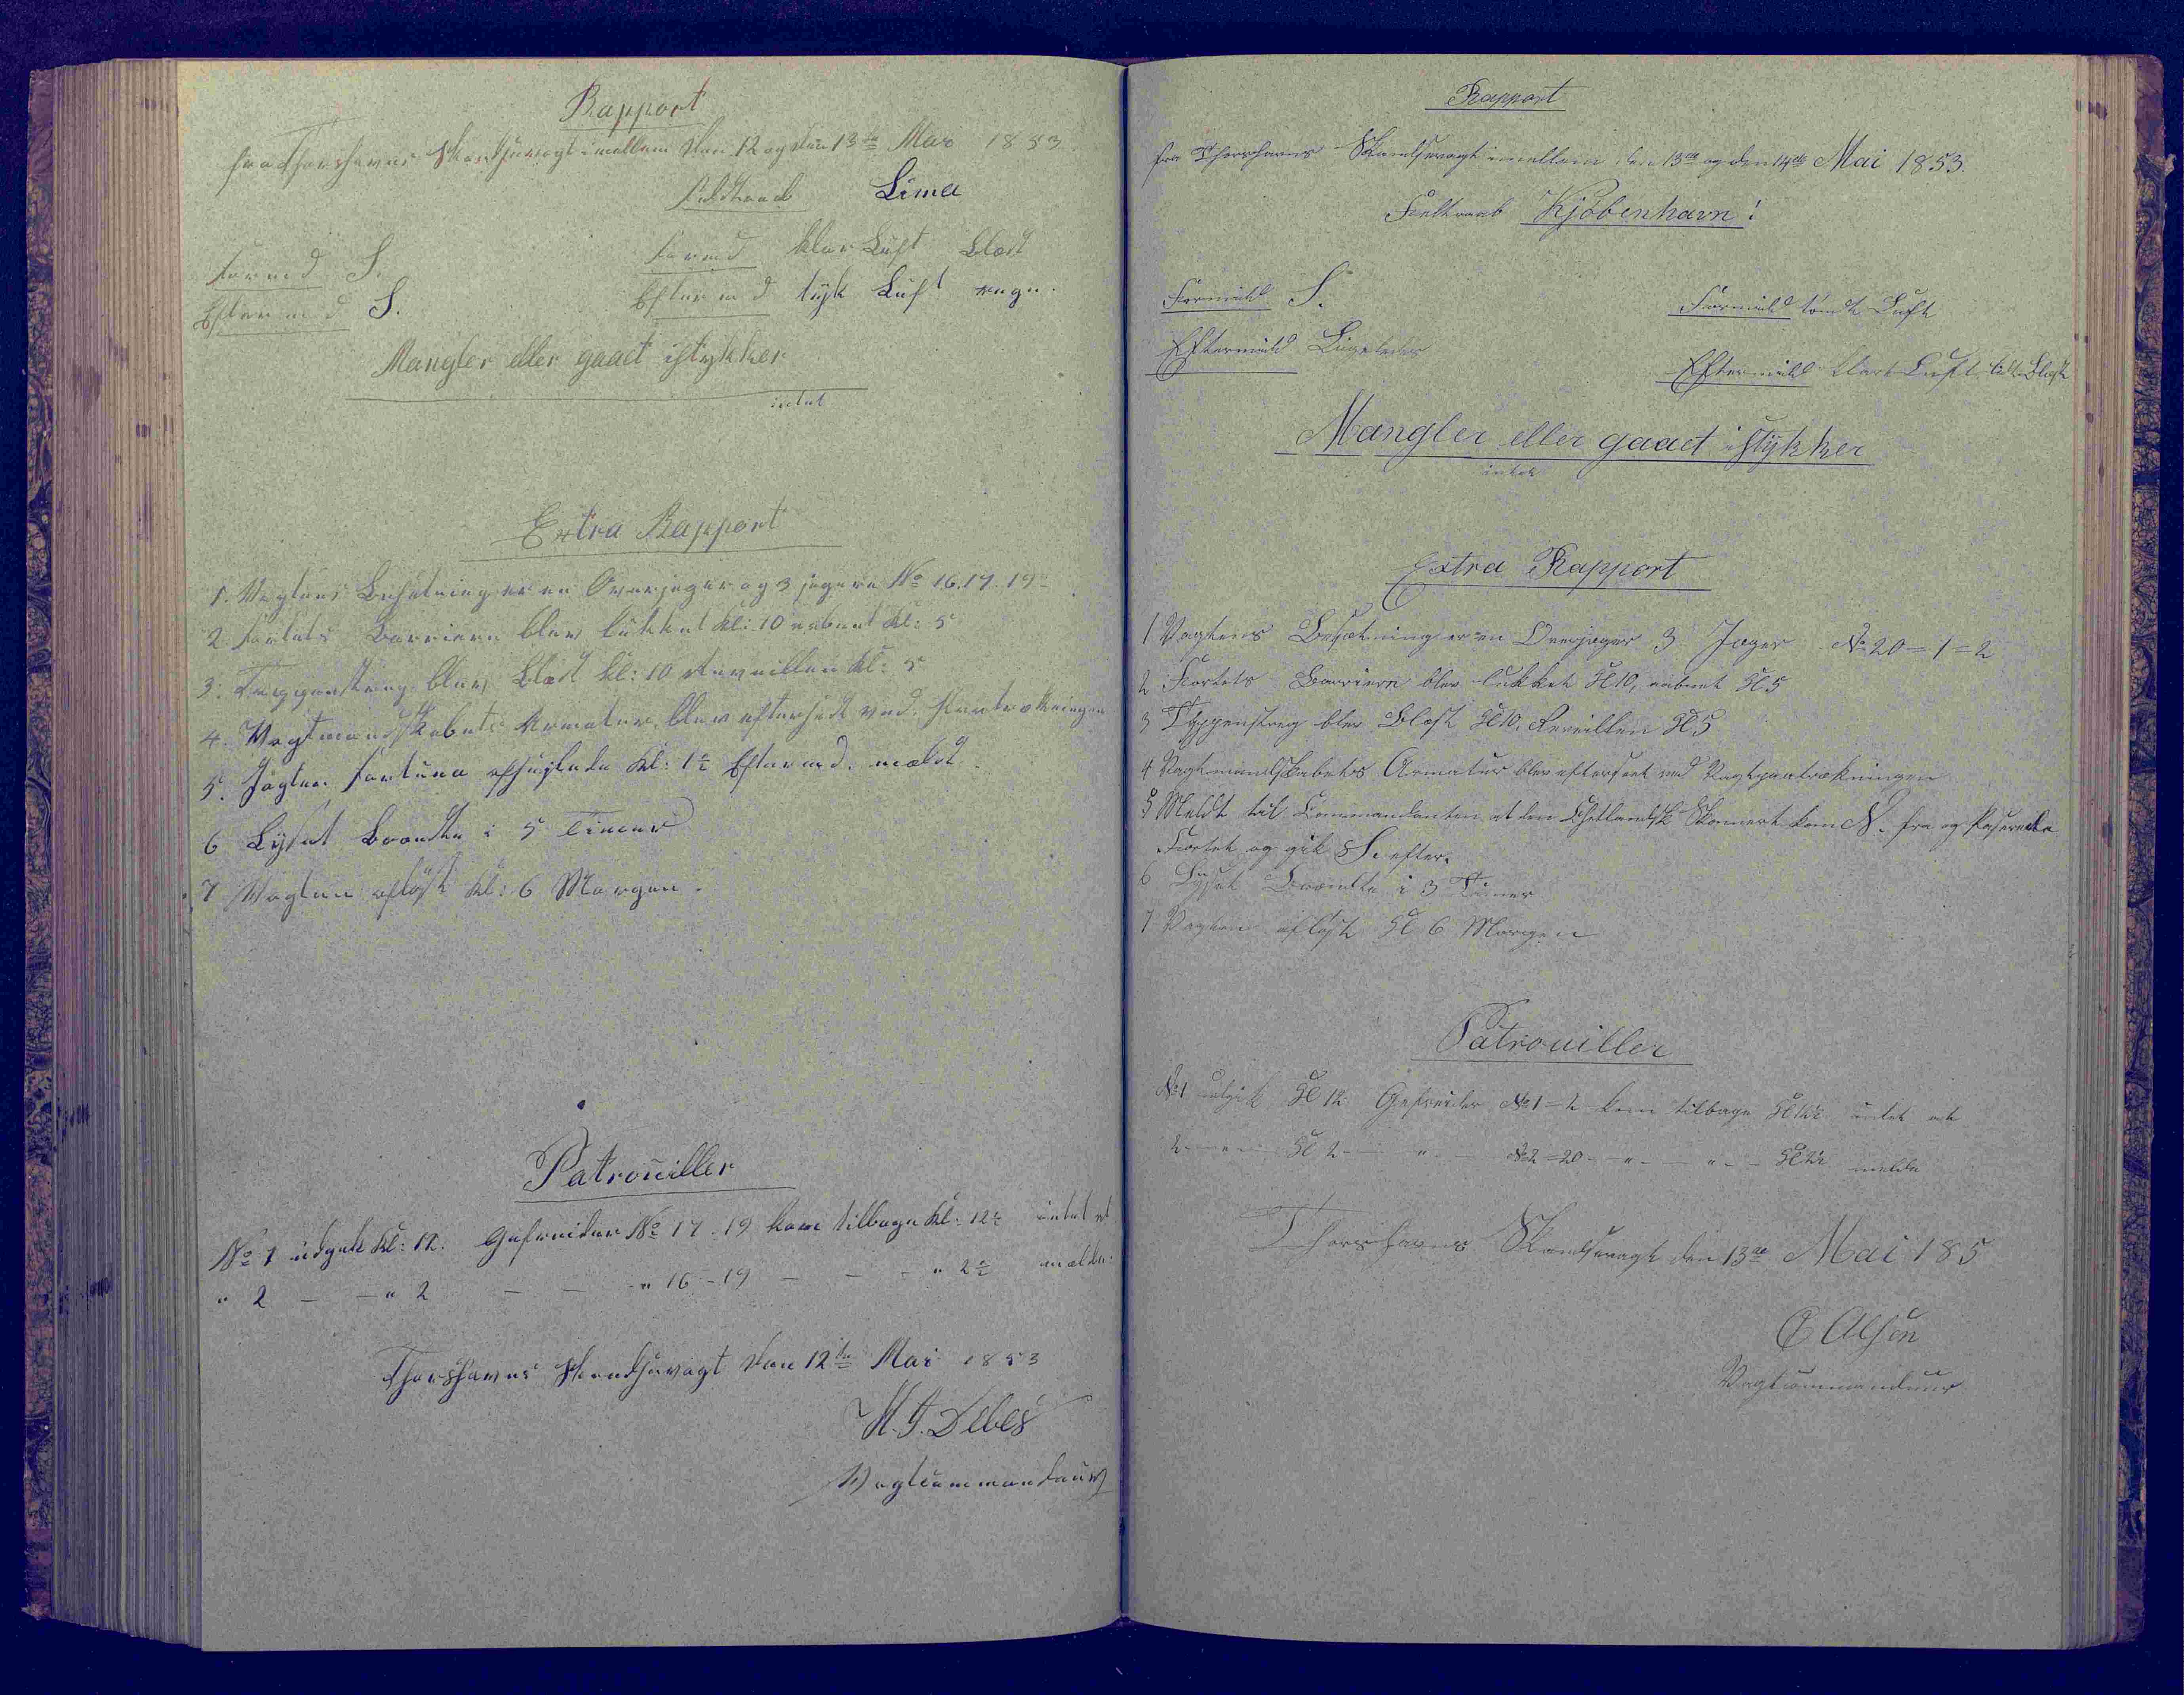 Rapport
fra Thorshavns Skandsevagt imellem den 12 og den 13de Mai 1853.
Feldtraab Lima
Formd S.
Formd klar Luft Blæst
Eftermd S.
Eftermd tyk Luft regn.
Mangler eller gaaet istykker
intet
Extra Rapport
1. Vagtens Besætning er en Overjæger og 3 jægere No 16. 17. 19
2. Fortets Barriere blev lukket Kl: 10 aabnet Kl: 5
3. Tappenstreg blev Blæst Kl: 10 Reveillen Kl: 5
4. Vagtmandskabets Armatur blev efterseet ved
5. Jagten Fortuna afsejlede Kl: 1½ Eftermd. meldt.
6 Lyset brændte i 5 Timer
7 Vagten afløst Kl: 6 Morgen.
Patrouiller
No 1 udgik Kl: 12. Gefreider No 17. 19 kom tilbage Kl: 12½ intet at
" 2 — — " 2 — — — " 16 - 19 — — - " 2½ melde.
Thorshavns Skandsevagt den 12te Mai 1853
H. J. Debes
Vagtcommandeur
Rapport
fra Thorshavns Skandsevagt imellem den 13de og den 14de Mai 1853.
Feltraab Kjöbenhavn!
Formidd S.
Formidd tömt Luft
Eftermidd Ligeledes
Eftermidd klart Luft lidt Blæst
Mangler eller gaaet istykker
intet
Extra Rapport
1 Vagtens Besætning er en Overjæger 3 Jæger No 20 = 1 = 2
2 Fortets Barriere blev lukket Kl 10, aabnet Kl 5
3 Tappenstreg blev Blæst Kl 10, Reveillen Kl 5
4 Vagtmandskabets Armatur blev efterseet ved Vagtparatrækningen
5 Meldt til Commandanten at den Shetlandsk Skonnert kom N. fra og Paserede
Fortet og gik S. efter.
6 Lyset Brændte i 3 Timer
7 Vagten aflöst Kl 6 Morgen
Patrouiller
No 1 udgik Kl 12 Gefreider No 1 - 2 kom tilbage Kl 12½ intet at
2 — " — Kl 2 — " — No 2 - 20 - " — " — Kl 2½ melde
Thorshavns Skandsevagt den 13de Mai 185
O Olsen
Vagtcommandeur